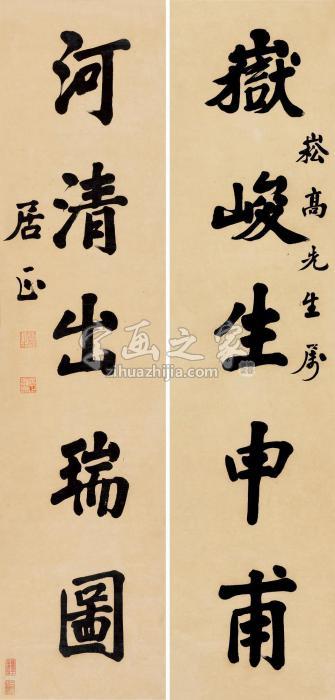 嶽峻生申甫
崧高先生属
河清出瑞圖
居正
字画之家
zihuazhijia.com